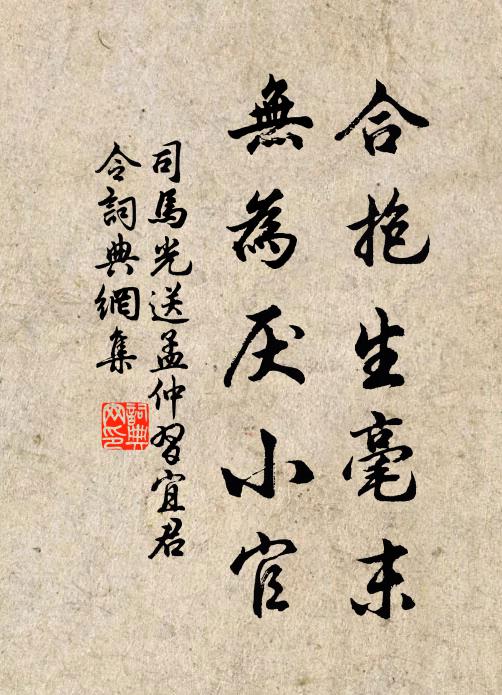 合抱生毫末
無為厌小官
司馬光送孟仲習宜君
令詞典網集
詞典网印